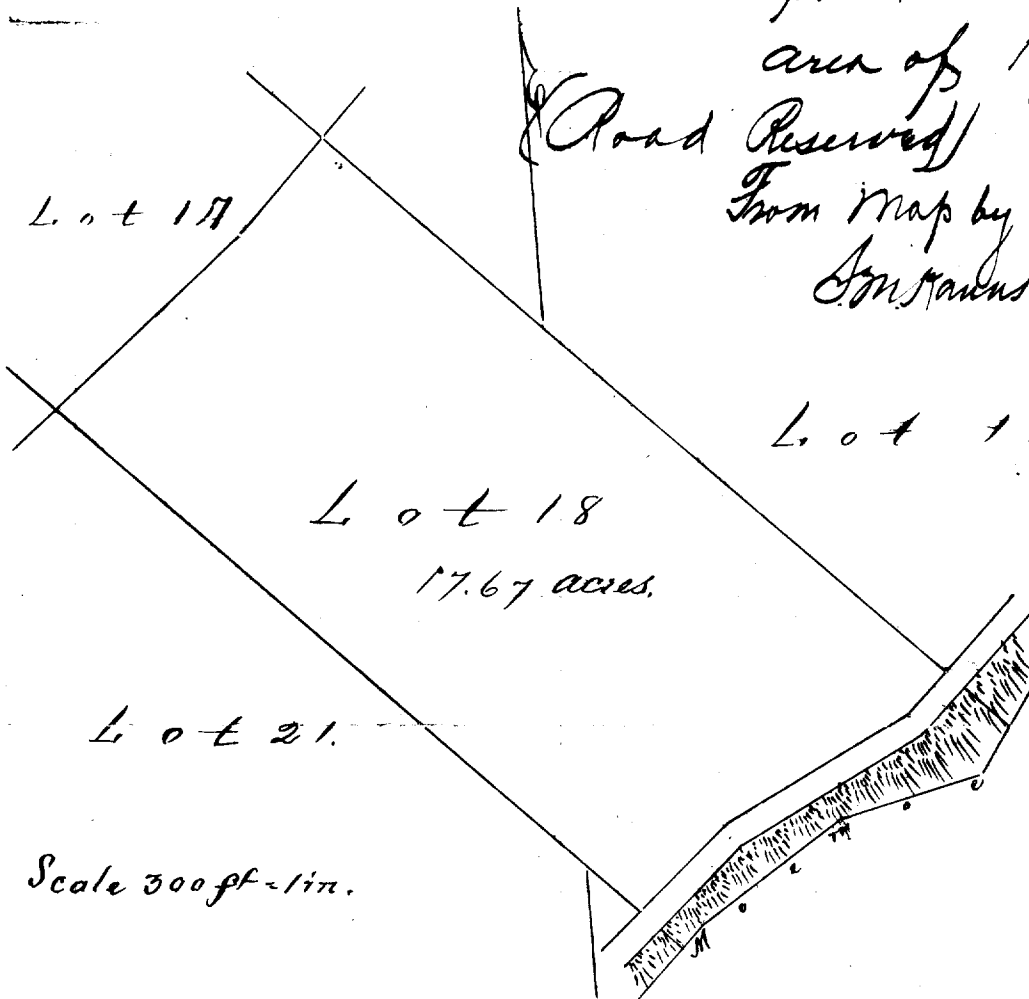 area of
(Road Reserved)
From Map by
Lot 17
Lot 1
Lot 18
17.67 acres.
Lot 21.
Scale 300 ft = 1 in.